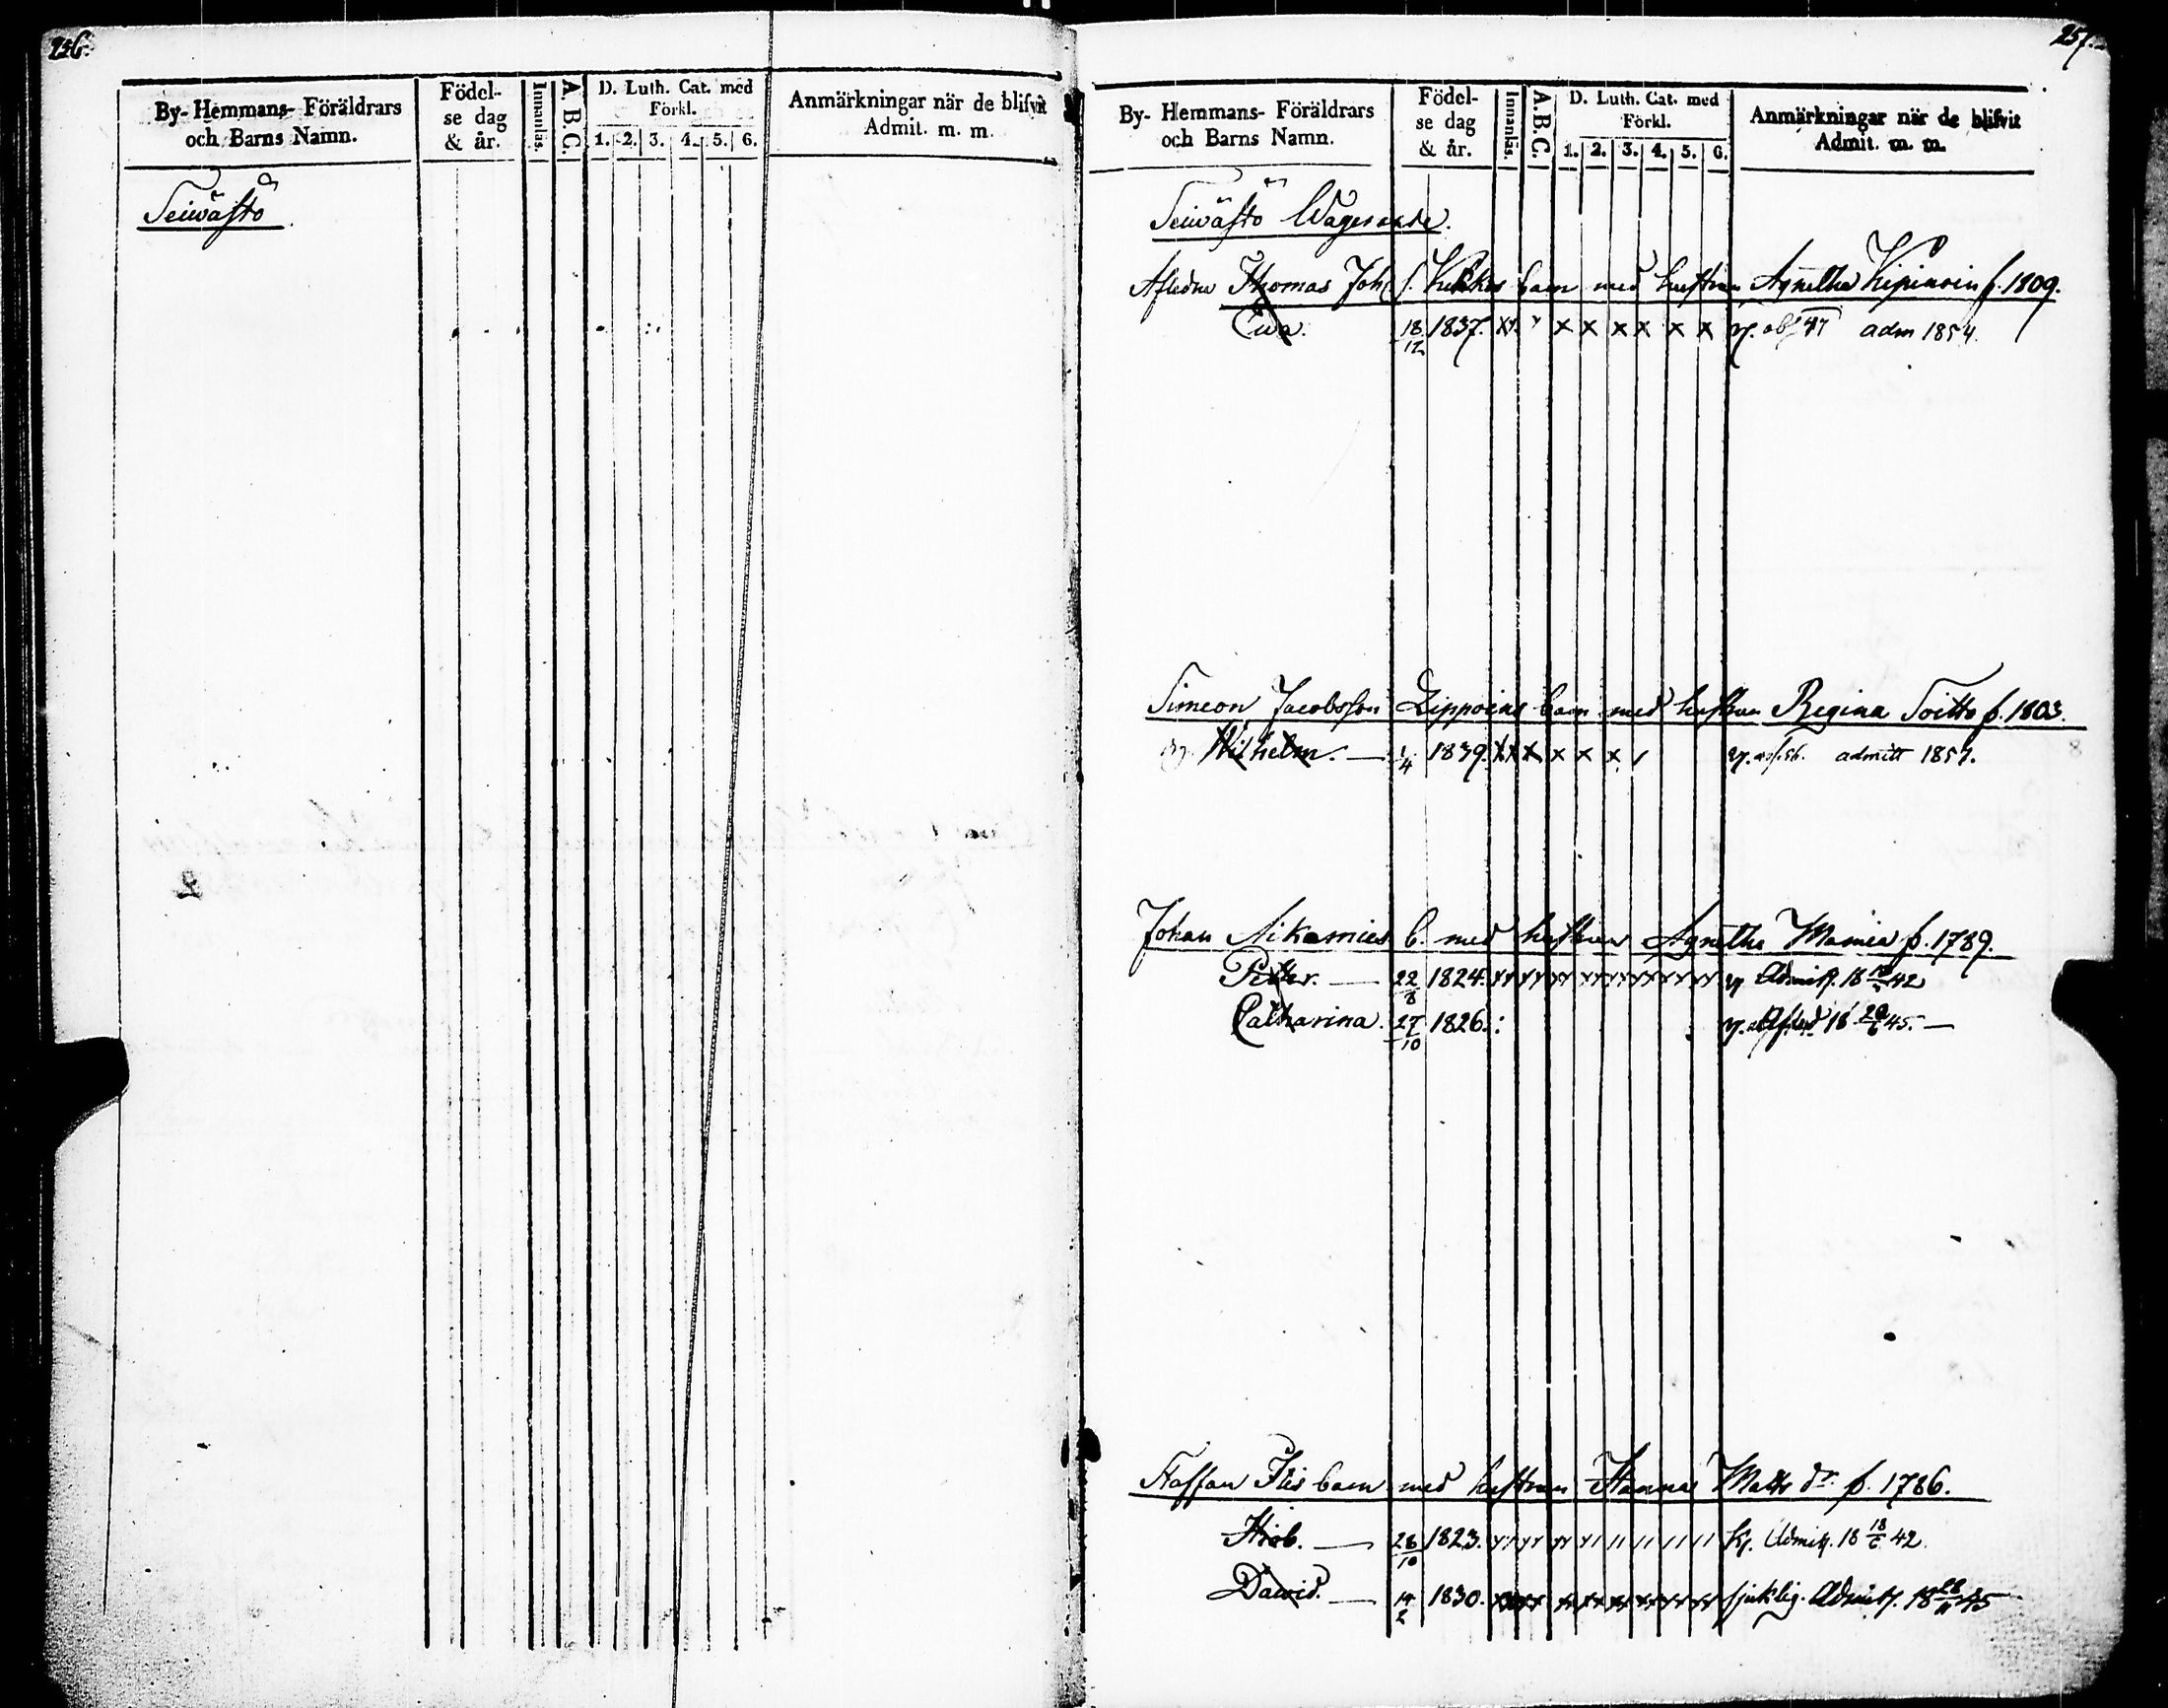 256.
By- Hemmans- Föräldrars och Barns Namn.
Födelse dag & år.
Innanläs.
A. B. C.
D. Luth. Cat. med Förkl.
1. 2. 3. 4. 5. 6.
Anmärkningar när de blifvit Admit. m. m.
Seiwästö
257.
By- Hemmans- Föräldrars och Barns Namn.
Födelse dag & år.
Innanläs.
A. B. C.
D. Luth. Cat. med Förkl.
1. 2. 3. 4. 5. 6.
Anmärkningar när de blifvit Admit. m. m.
Seiwästö
Afledne Thomas Joh. s. Kukkos barn med hustrun Agnetha f. 1809.
Ewa. 18/12 1837. x x x x x x adm 1854.
Simeon Jacobsson Lippoins barn med hustrun Regina Soitto f. 1803.
Wilhelm. — 1/4 1839. x x x x x x admitt 1857.
Johan Nikamies b. med hustrun Agnetha f. 1789.
Petter. — 22/8 1824. Admitt. 18 42
Catharina. 27/10 1826. 18 45. —
Staffan barn med hustrun Hanna Matts dr f. 1786.
Hiob. — 28/10 1823. Admitt. 18 18/6 42.
Dawid. — 14/2 1830. sjuklig. Admitt. 18 45